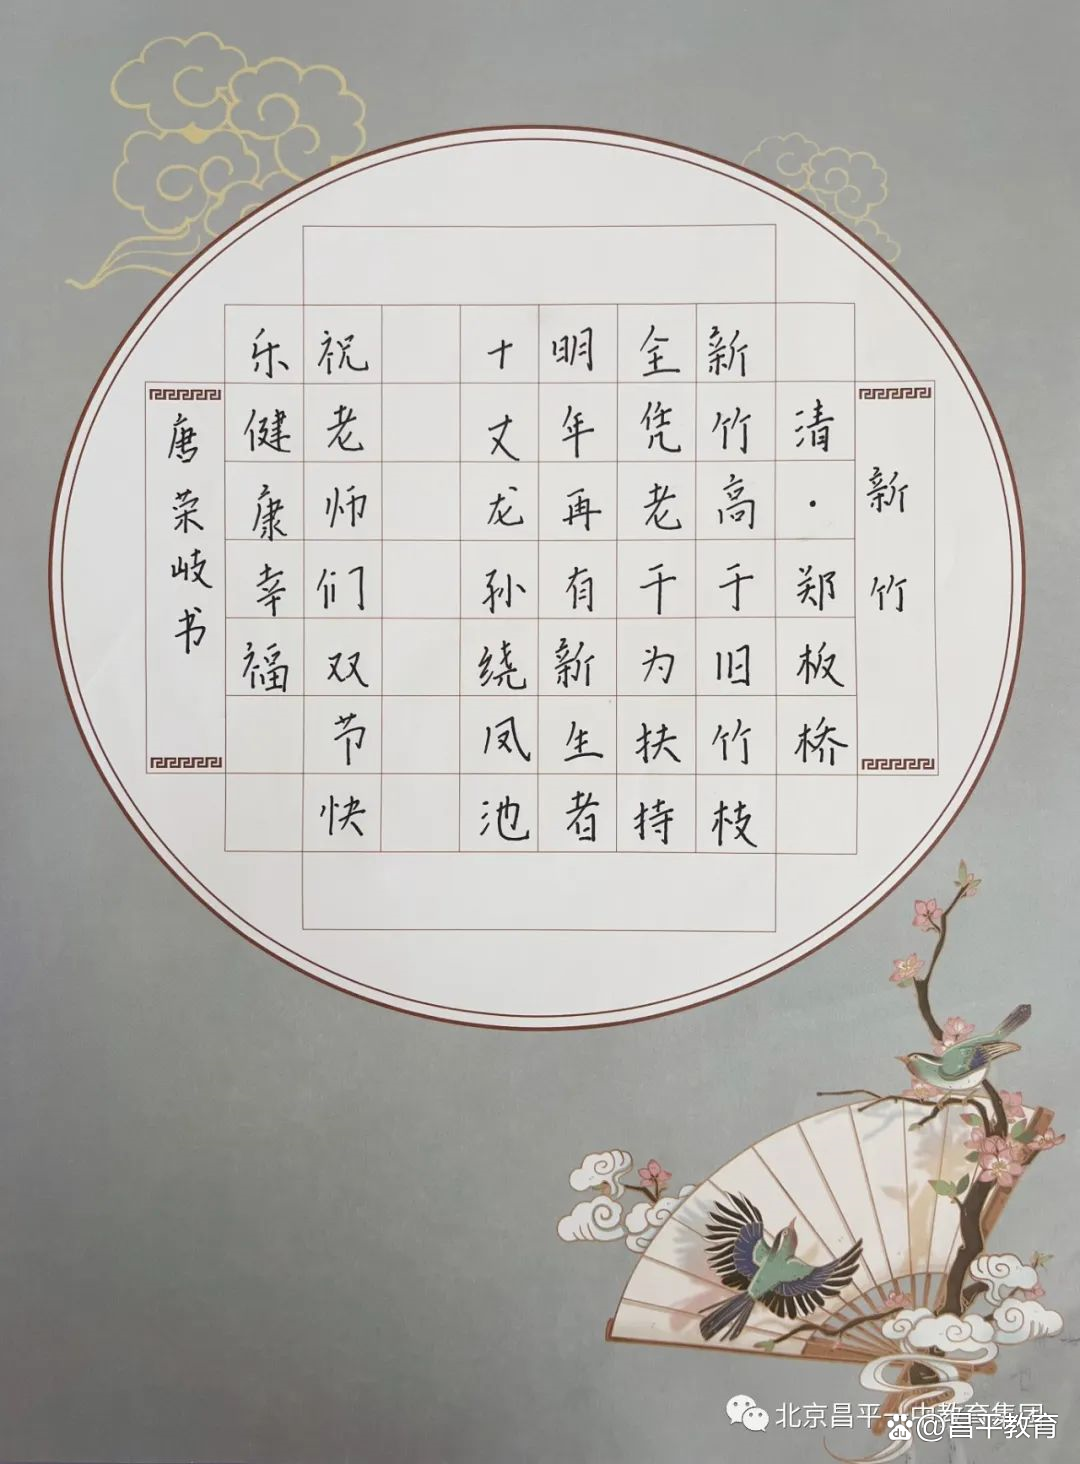 新竹
清·郑板桥
新竹高于旧竹枝
全凭老干为扶持
明年再有新生者
十丈龙孙绕凤池
祝老师们双节快
乐健康幸福
唐荣岐书
北京昌平一中教育集团
@昌平教育